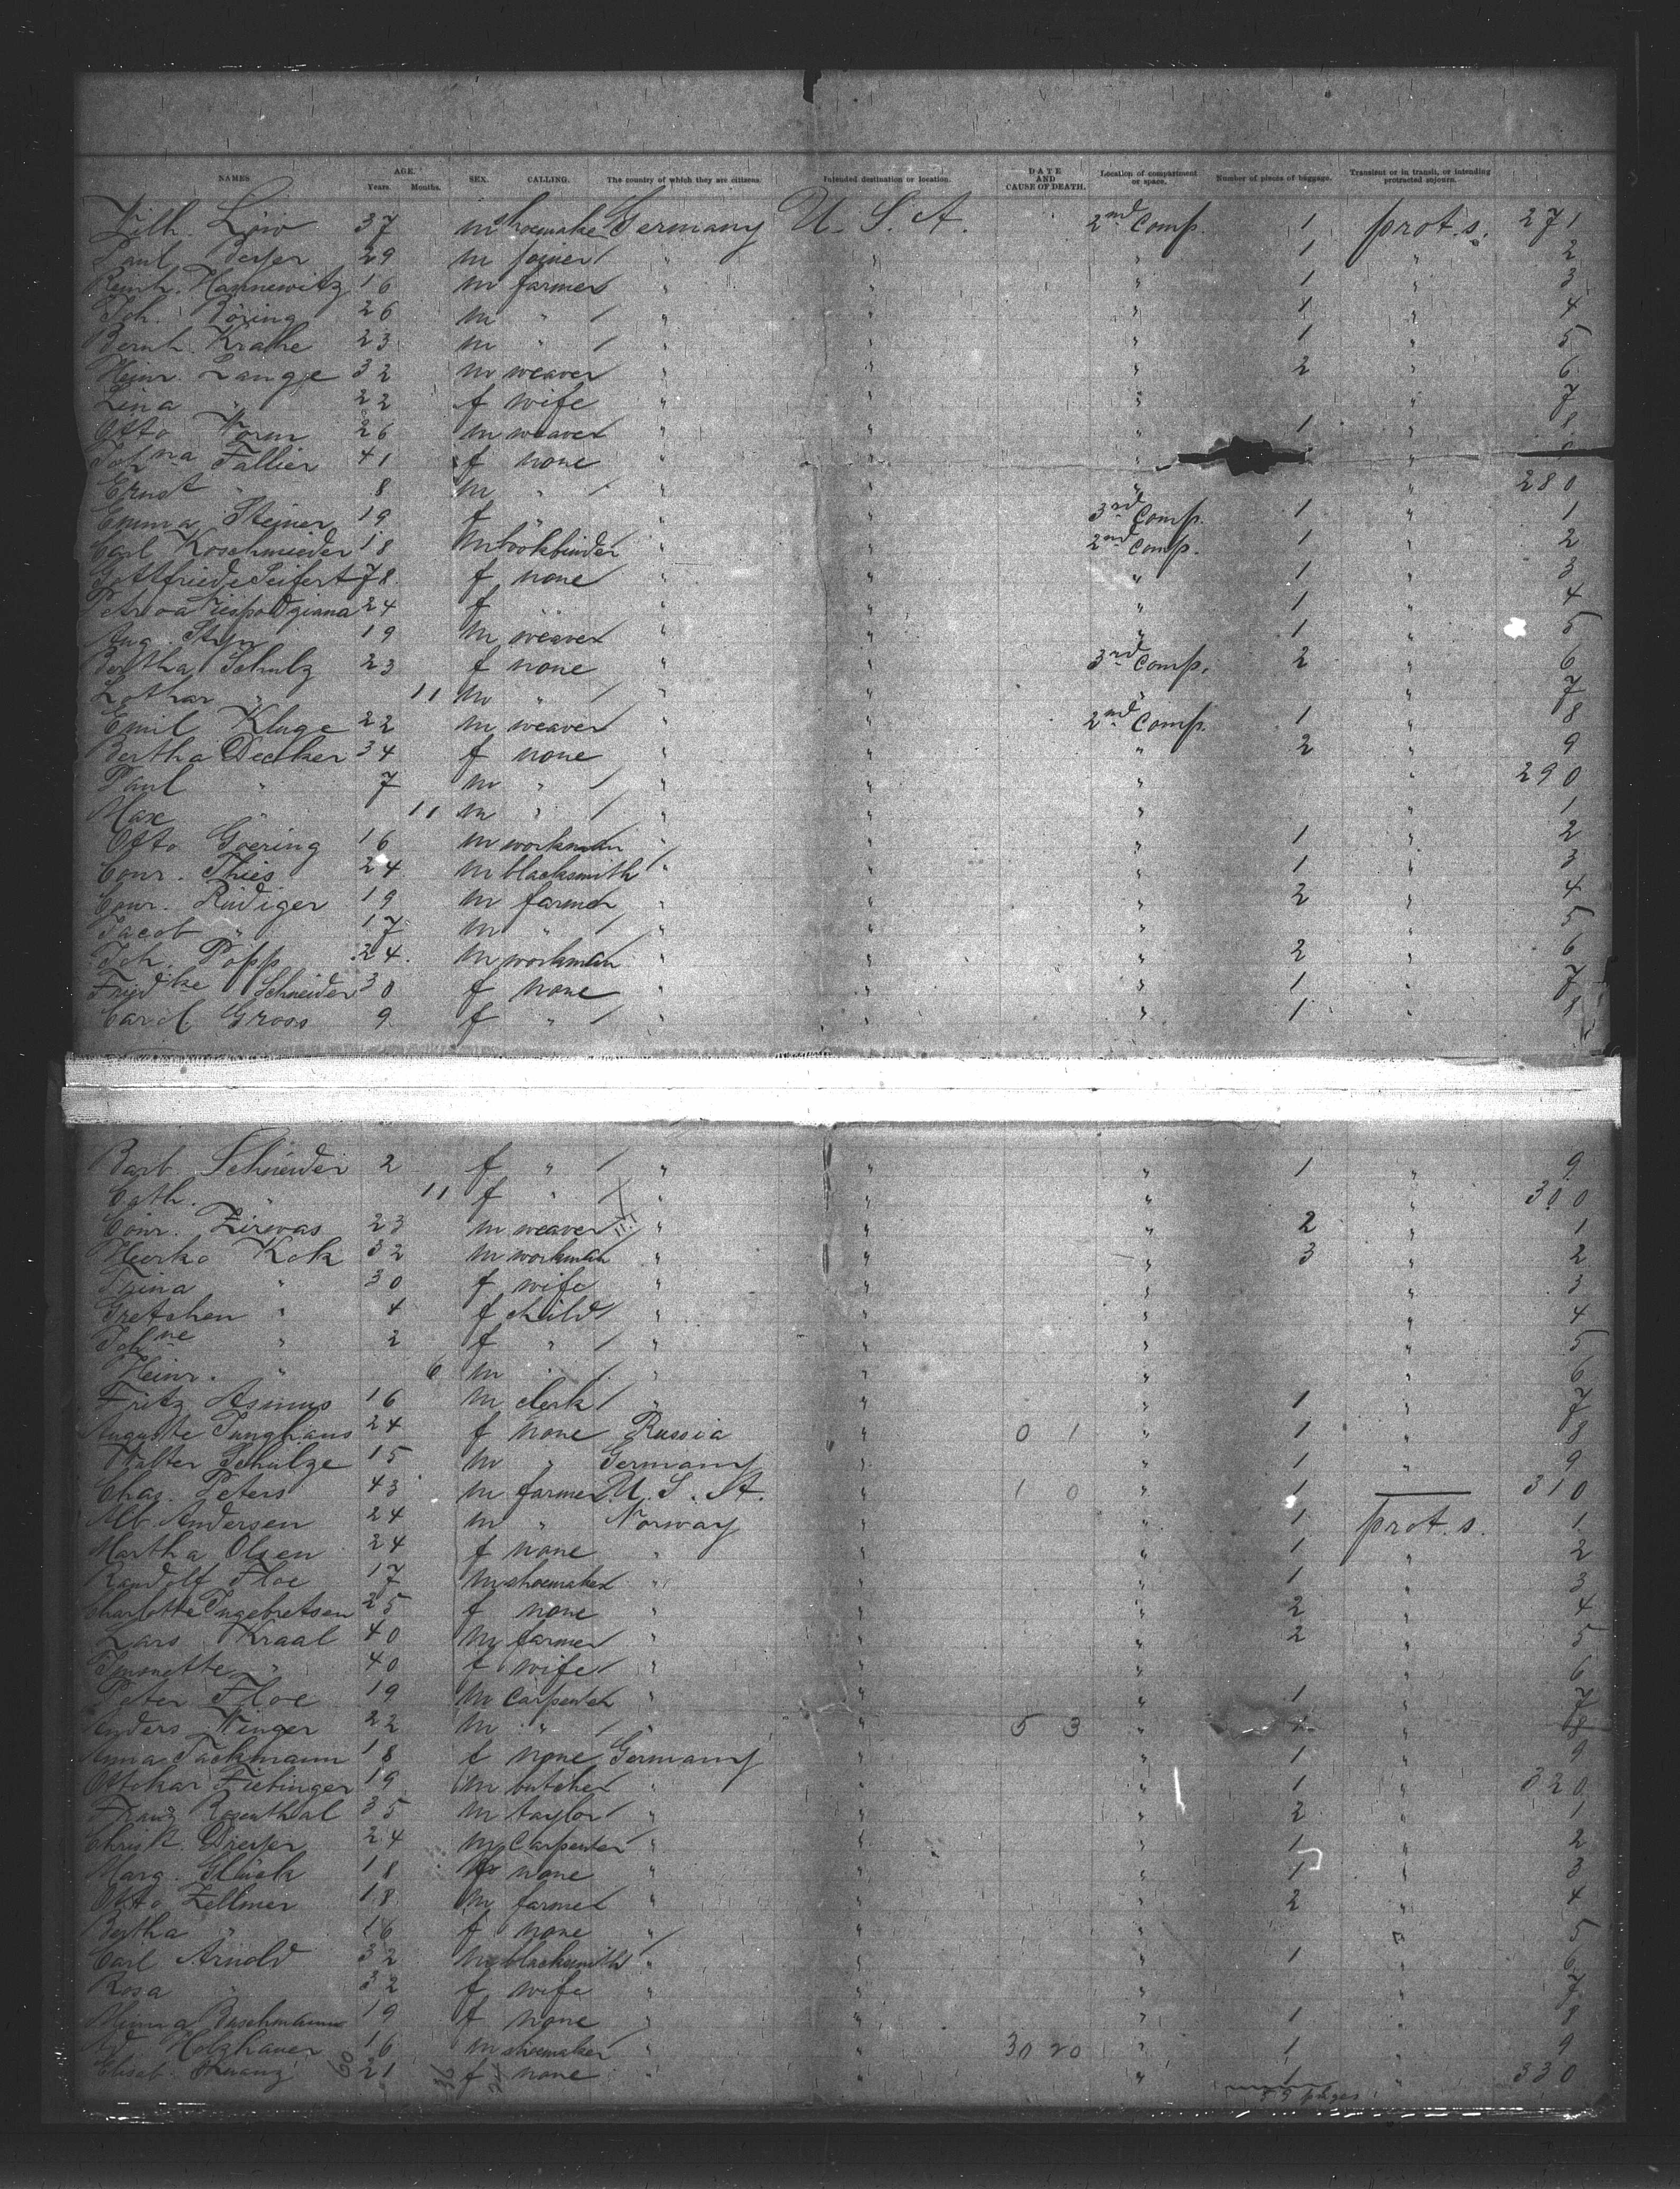 NAMES. AGE. Years. Months. SEX. CALLING. The country of which they are citizens. Intended destination or location. DATE AND CAUSE OF DEATH. Location of compartment or space. Number of pieces of baggage. Transient or in transit, or intending protracted sojourn.
Wilh. Löw 37 m shoemaker Germany U. S. A. 2nd Comp. 1 prot. s. 271
Paul 29 m joiner " " " 1 " 2
Reinh. Hannewitz 16 m farmer " " " 1 " 3
Joh. Böring 26 m " " " " 1 " 4
Bernh. Krahe 23 m " " " " 1 " 5
Heinr. Lange 32 m weaver " " " 2 " 6
Lina " 22 f wife " " " " 7
Otto Worm 26 m weaver " " " 1 " 8
Johna Fallier 41 f none " " " "
Ernst " 8 m " " " " " 280
Emma Steiner 19 f " " " 3rd Comp. 1 " 1
Carl Koschmieder 18 m bookbinder " " 2nd Comp. 1 " 2
Gottfriede Seifert 78 f none " " " 1 " 3
24 f " " " 1 " 4
Aug. 19 m weaver " " " 1 " 5
Bertha Schulz 23 f none " " 3rd Comp. 2 " 6
Lothar " 11 m " " " " " 7
Emil Kluge 22 m weaver " " 2nd Comp. 1 " 8
Bertha Decker 34 f none " " " 2 " 9
Paul " 7 m " " " " " 290
Max " 11 m " " " " " 1
Otto Goering 16 m workman " " " 1 " 2
Conr. Thies 24 m blacksmith " " " 1 " 3
Conr. Rüdiger 19 m farmer " " " 2 " 4
Jacob " 17 m " " " " " 5
Joh. Popp 24 m workman " " " 2 " 6
Friedke Schneider 30 f none " " " 1 " 7
Carol. Gross 9 f " " " " 1 " 8
Barb. Schneider 2 f " " " " 1 " 9
Cath. " 11 f " " " " " 300
Conr. Zirwas 23 m weaver " " " 2 " 1
Heerko Kok 32 m workman " " " 3 " 2
Trina " 30 f wife " " " " 3
Gretchen " 4 f child " " " " 4
Johne " 2 f " " " " " 5
Heinr. " 6 m " " " " " 6
Fritz Asmus 16 m clerk " " " 1 " 7
Auguste Junghans 24 f none Russia " 0 1 " 1 " 8
Walter Schulze 15 m " Germany " " 1 " 9
Chas. Peters 43 m farmer U. S. A. " 1 0 " 1 — 310
Alb. Andersen 24 m " Norway " " 1 prot. s. 1
Martha Olsen 24 f none " " " 1 " 2
Randolf Floe 17 m shoemaker " " " 1 " 3
Charlotte Ingebretsen 25 f none " " " 2 " 4
Lars Kraal 40 m farmer " " " 2 " 5
" 40 f wife " " " " 6
Peter Floe 19 m carpenter " " " 1 " 7
Anders Winger 22 m " " " 5 3 " 1 " 8
Anna Tackmann 18 f none Germany " " 1 " 9
Ottokar Fiebinger 19 m butcher " " " 1 " 320
Franz Rosenthal 35 m taylor " " " 2 " 1
24 m carpenter " " " 1 " 2
Marg. Glück 18 f none " " " 1 " 3
Otto Zellmer 18 m farmer " " " 2 " 4
Bertha " 16 f none " " " " 5
Carl Arnold 32 m blacksmith " " " 1 " 6
Rosa " 32 f wife " " " " 7
Minna Buschmann 19 f none " " " 1 " 8
Ad. Holzhauer 16 m shoemaker " " 30 20 " 1 " 9
Elisab. 21 f none " " " 1 " 330
60 36 24